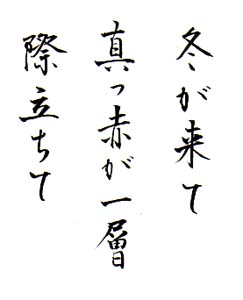 冬が来て
真っ赤が一層
際立ちて